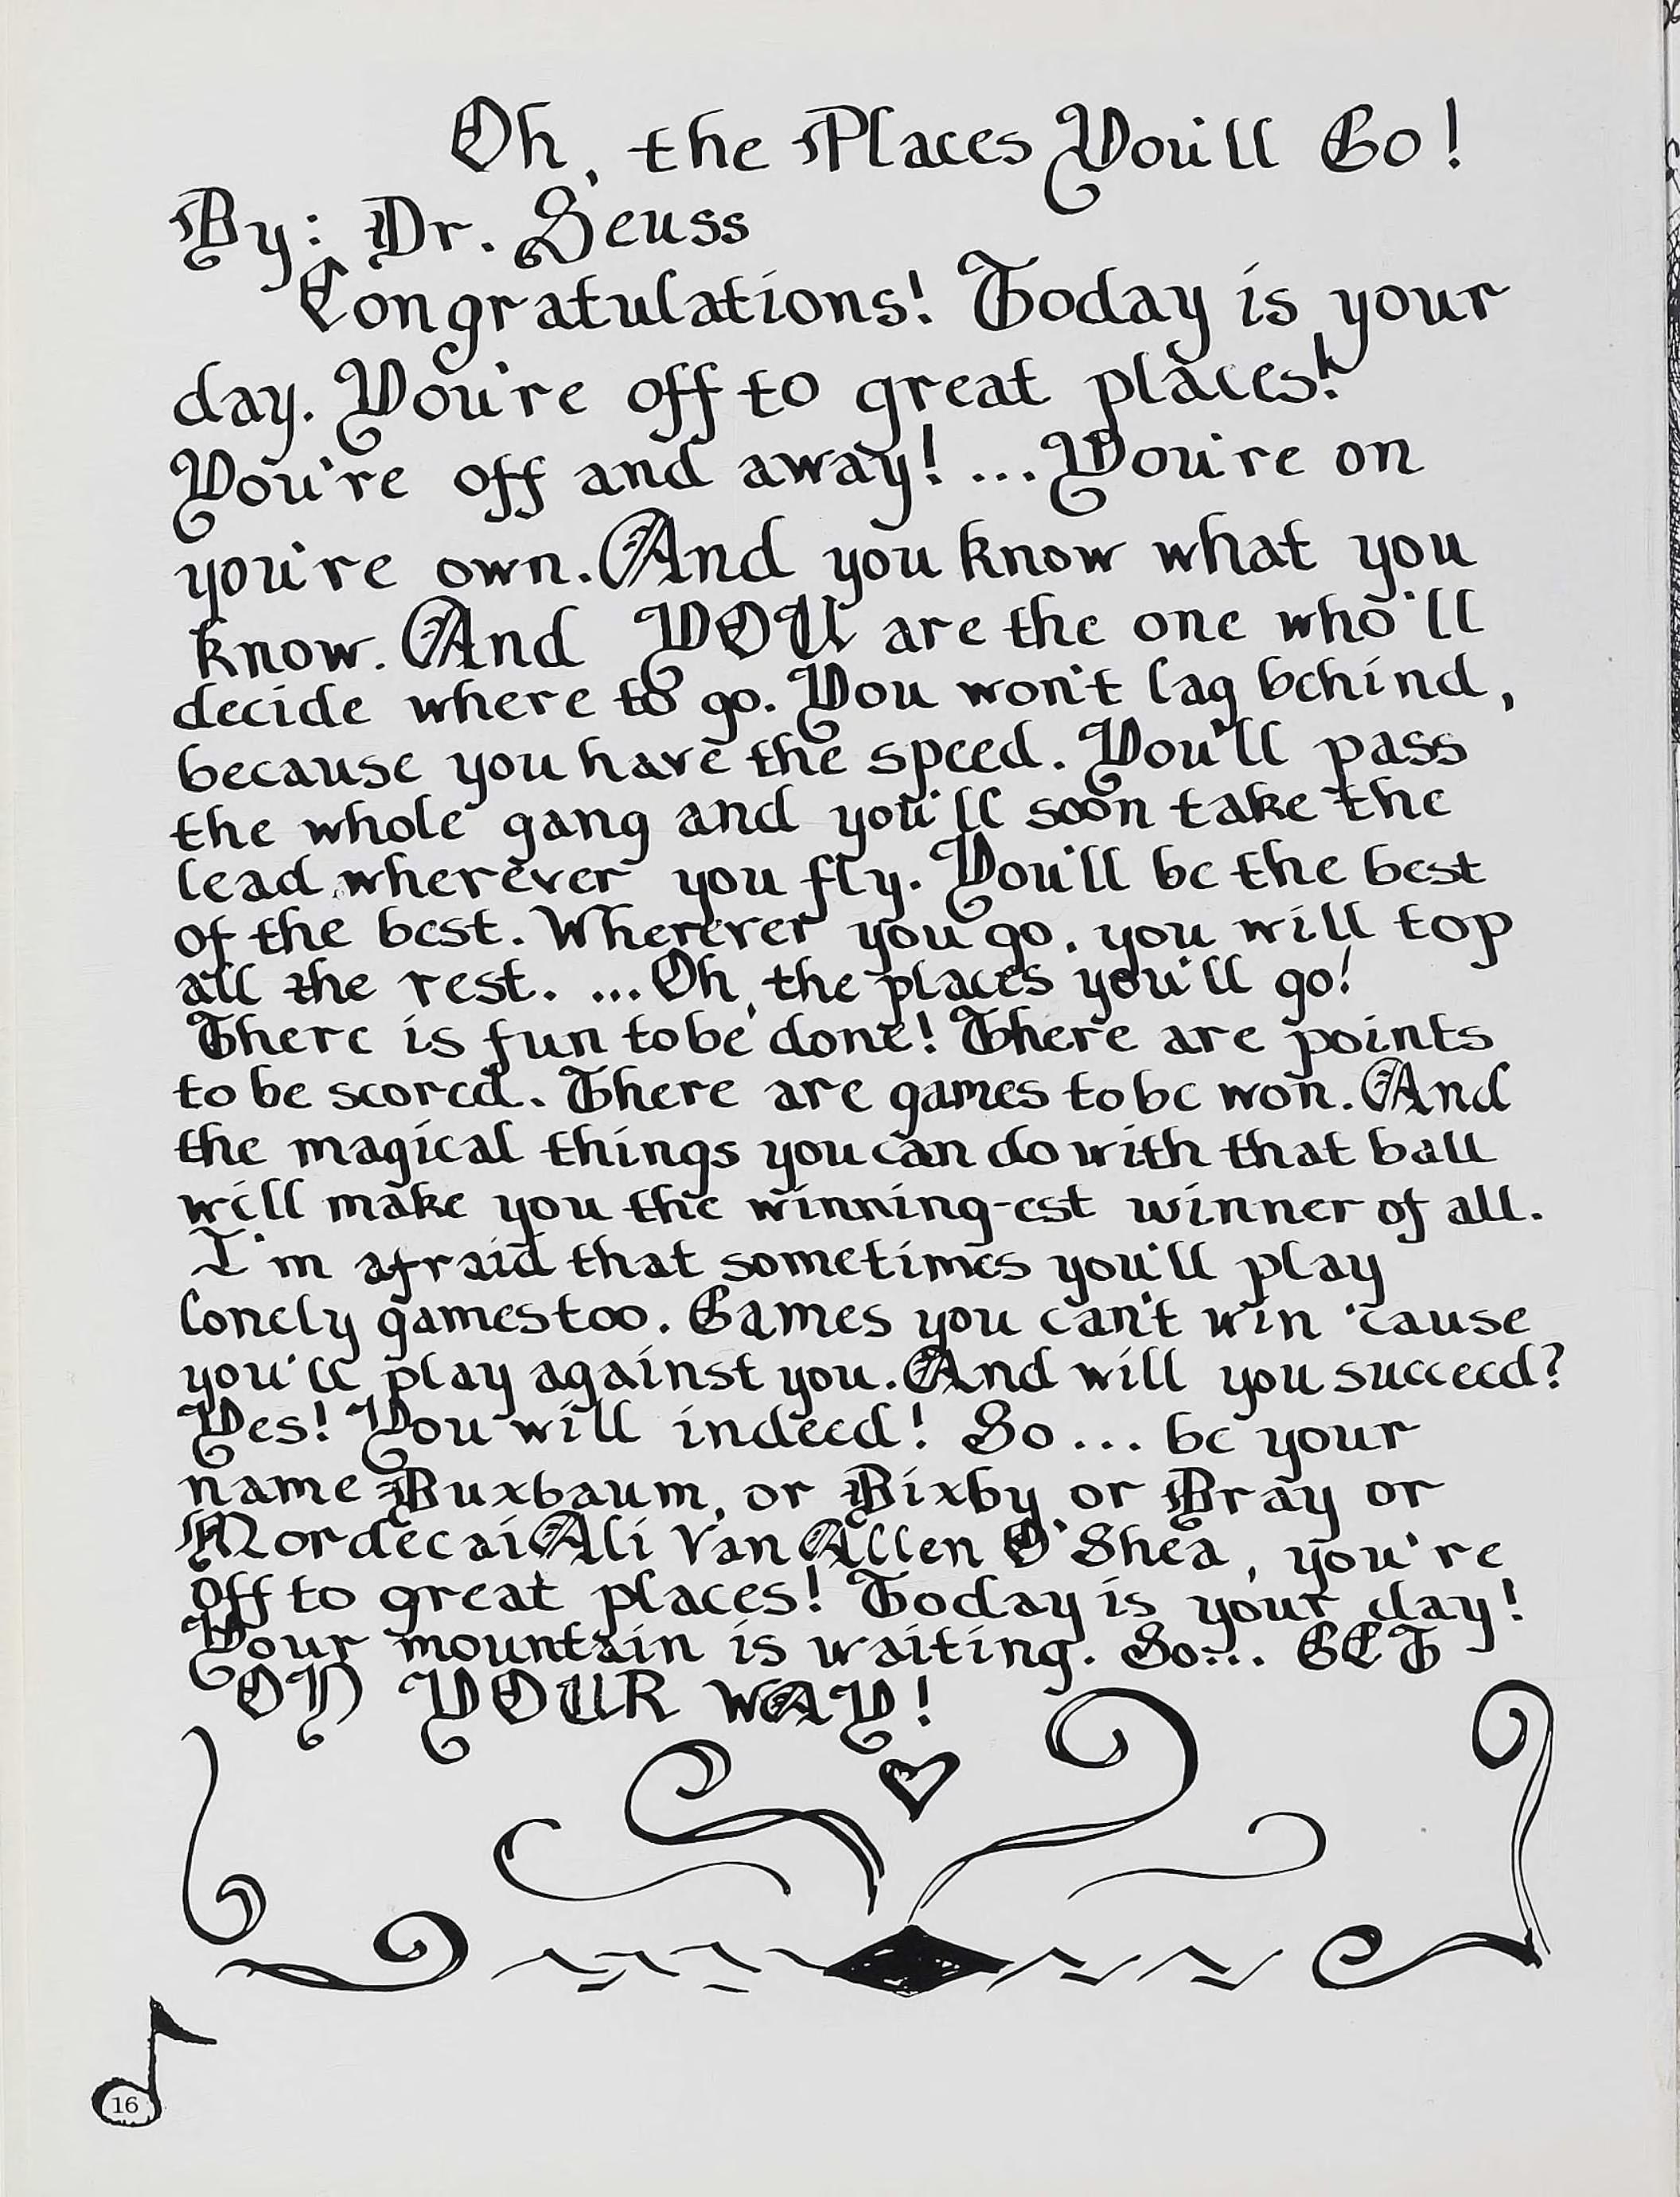 Oh, the Places You'll Go!
By: Dr. Seuss
Congratulations! Today is your
day. You're off to great places!
You're off and away! ... You're on
you're own. And you know what you
know. And YOU are the one who'll
decide where to go. You won't lag behind,
because you have the speed. You'll pass
the whole gang and you'll soon take the
lead wherever you fly. You'll be the best
of the best. Wherever you go, you will top
all the rest. ... Oh, the places you'll go!
There is fun to be done! There are points
to be scored. There are games to be won. And
the magical things you can do with that ball
will make you the winning-est winner of all.
I'm afraid that sometimes you'll play
lonely games too. Games you can't win 'cause
you'll play against you. And will you succeed?
Yes! You will indeed! So ... be your
name Buxbaum, or Bixby, or Bray or
Mordecai Ali Van Allen O'Shea, you're
off to great places! Today is your day!
Your mountain is waiting. So... GET
ON YOUR WAY!
16